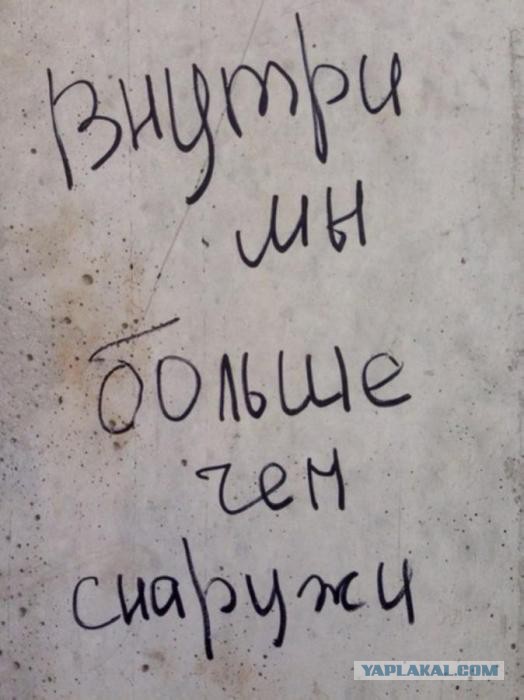 Внутри
мы
больше
чем
снаружи
YAPLAKAL.COM